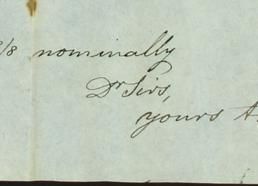 /8 nominally
Dr Sirs,
yours